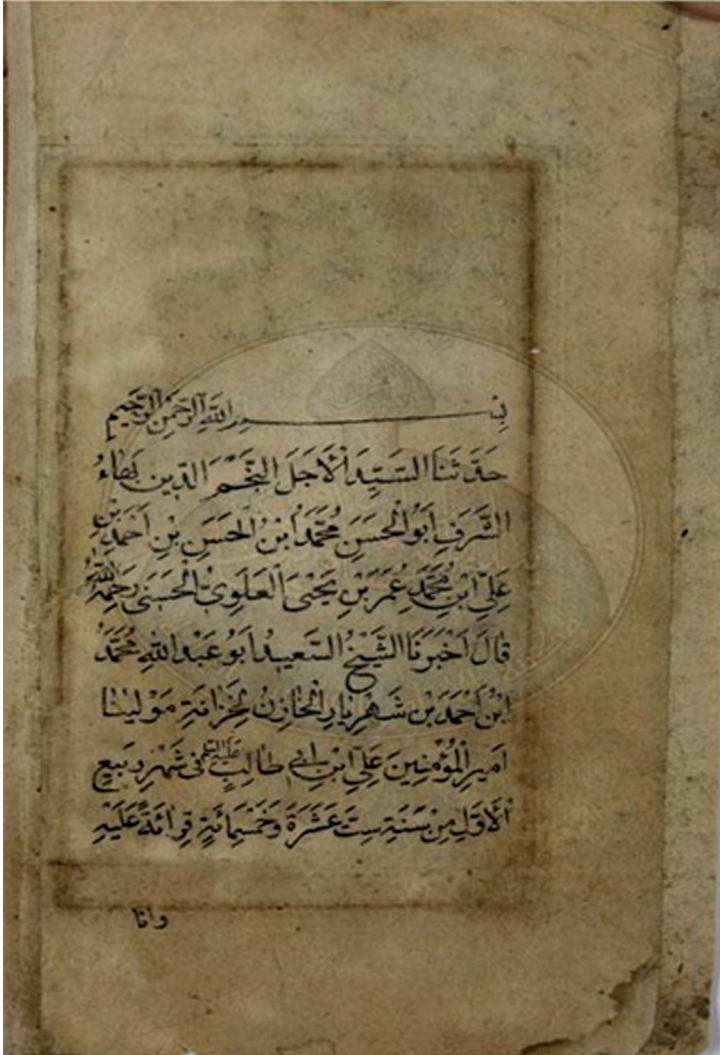 بِسْمِ اللَّهِ الرَّحْمٰنِ الرَّحِيمِ
حَدَّثَنَا السَّيِّدُ الْأَجَلُّ النَّجْمُ الدِّينِ بَهَاءُ
الشَّرَفِ أَبُو الْحَسَنِ مُحَمَّدُ ابْنُ الْحَسَنِ بْنِ أَحْمَدِ بْنِ
عَلِيِّ ابْنِ مُحَمَّدِ عُمَرَ بْنِ يَحْيَى الْعَلَوِيُّ الْحَسَنِي رَحِمَهُ اللهُ
قَالَ أَخْبَرَنَا الشَّيْخُ السَّعِيدُ أَبُو عَبْدِ اللهِ مُحَمَّدُ
ابْنُ أَحْمَدَ بْنِ شَهْرِيَارِ الْخَازِنُ لِخِزَانَةِ مَوْلَيٰنَا
أَمِيرِ الْمُؤْمِنِينَ عَلِيِّ ابْنِ أَبِي طَالِبٍ عَلَيْهِ السَّلَم فِي شَهْرِ رَبِيعِ
الْأَوَّلِ مِنْ سَنَةِ سِتَّ عَشَرَةَ وَخَمْسَمِائَةٍ قِرَائَةً عَلَيْهِ
وانا